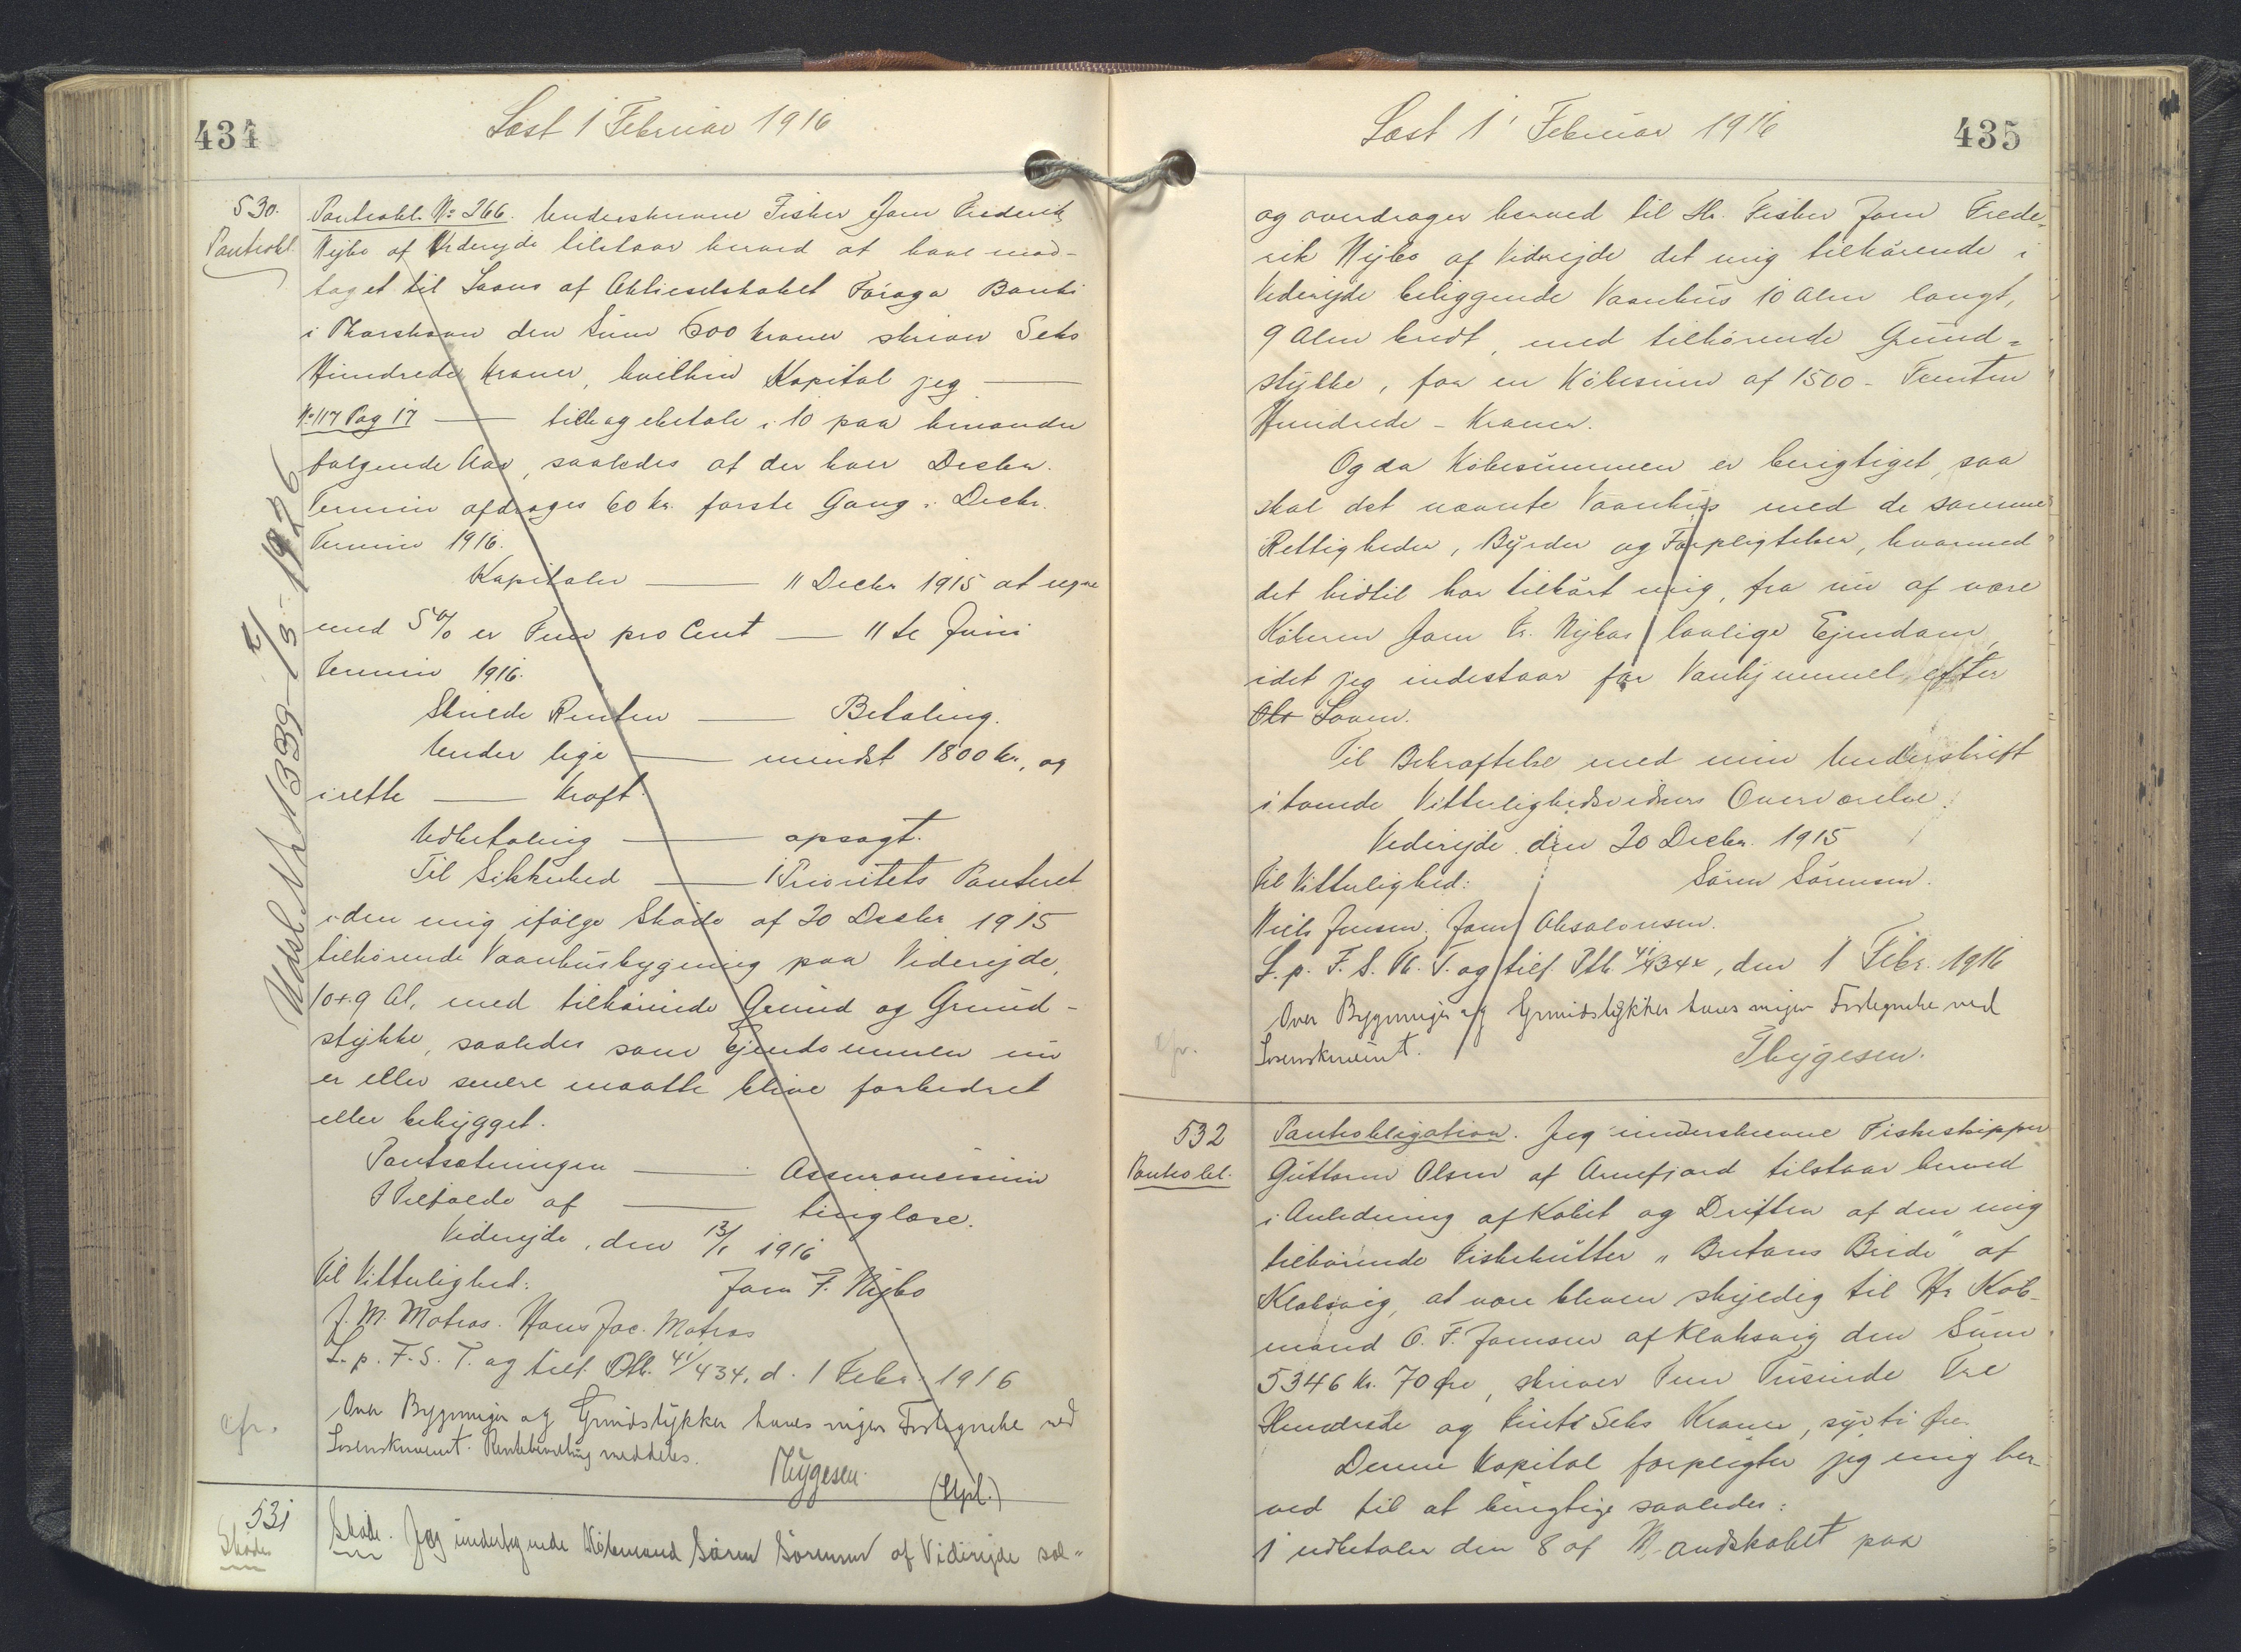 434
Læst 1 Februar 1916
530.
Panteobl.
Panteobl. No 266. Undertskrevne Fisker Joen Frederik
Nijbo af Viderejde tilstaar herved at have mod-
taget til Laans af Aktieselskabet Föroya Banki
i Thorshavn den Sum 600 Kroner skriver Seks
Hundrede Kroner, hvilken Kapital jeg —
No 117 Pag 17 — tilbagebetale i 10 paa hinanden
følgende Aar, saaledes at der hver Decbr.
Termin afdrages 60 Kr. første Gang i Decbr.
Termin 1916.
Kapitalen — 11 Decbr 1915 at regne
med 5% er Fem pro Cent — 11te Juni
Termin 1916.
Skulde Renten — Betaling.
Under lige — mindst 1800 Kr, og
i rette — Kraft.
Udbetaling — opsagt.
Til Sikkerhed — 1 Prioritets Panteret
i den mig ifølge Skøde af 20 Decbr 1915
tilhørende Vaanhusbygning paa Viderejde,
10x9 Al, med tilhørende Grund og Grund-
stykke, saaledes som Ejendommen nu
er eller senere maatte blive forbedret
eller bebygget.
Pantsætningen — Assurancesum
I Tilfælde af — tinglæse.
Viderejde, den 13/1 1916
Til Vitterlighed: Joen F. Nijbo
J. M. Matras. Hans Jac. Matras
L. p. F. S. T. og tilf. Ptb. 41/434, d. 1 Febr. 1916
cfr.
Over Bygninger og Grundstykker haves ingen Fortegnelse ved
Sorenskriveriet. Rentebevilling meddeles.
Thygesen.
(Stpl.)
Udsl. Nr 1339 - 2/9 - 1926
531
Skøde
Skøde. Jeg undertegnede Købmand Sören Sörensen af Viderejde sæl-
435
Læst 1 Februar 1916
og overdrager herved til Hr. Fisker Joen Frede-
rik Nijbo af Viderejde det mig tilhørende i
Viderejde beliggende Vaanhus 10 Alen langt,
9 Alen bredt, med tilhørende Grund=
stykke, for en Købesum af 1500 - Femten
Hundrede - Kroner.
Og da Købesummen er berigtiget, saa
skal det nævnte Vaanhus med de samme
Rettigheder, Byrder og Forpligtelser, hvormed
det hidtil har tilhørt mig, fra nu af være
Køberen Joen Fr. Nijbos lovlige Ejendom,
idet jeg indestaar for Vanhjemmel efter
Loven.
Til Bekræftelse med min Underskrift
i tvende Vitterlighedsvidners Overværelse.
Viderejde den 20 Decbr. 1915
Til Vitterlighed: Sören Sörensen.
Niels Jensen, Joen Absalonsen.
L. p. F. S. Th. T. og tilf. Ptb. 41/434x, den 1 Febr. 1916
cfr.
Over Bygninger og Grundstykker haves ingen Fortegnelse ved
Sorenskriveriet.
Thygesen.
532
Panteobl.
Panteobligation. Jeg underskrevne Fiskeskipper
Guttorm Olsen af Arnefjord tilstaar herved
i Anledning af Købet og Driften af den mig
tilhørende Fiskekutter „Britans Bride" af
Klaksvig, at være bleven skyldig til Hr Køb-
mand O. F. Joensen af Klaksvig den Sum
5346 Kr. 70 Øre, skriver Fem Tusinde Tre
Hundrede og Firti Seks Kroner, syvti Øre.
Denne Kapital forpligter jeg mig her-
ved til at berigtige saaledes:
1 udbetaler den 8 af Mandskabet paa